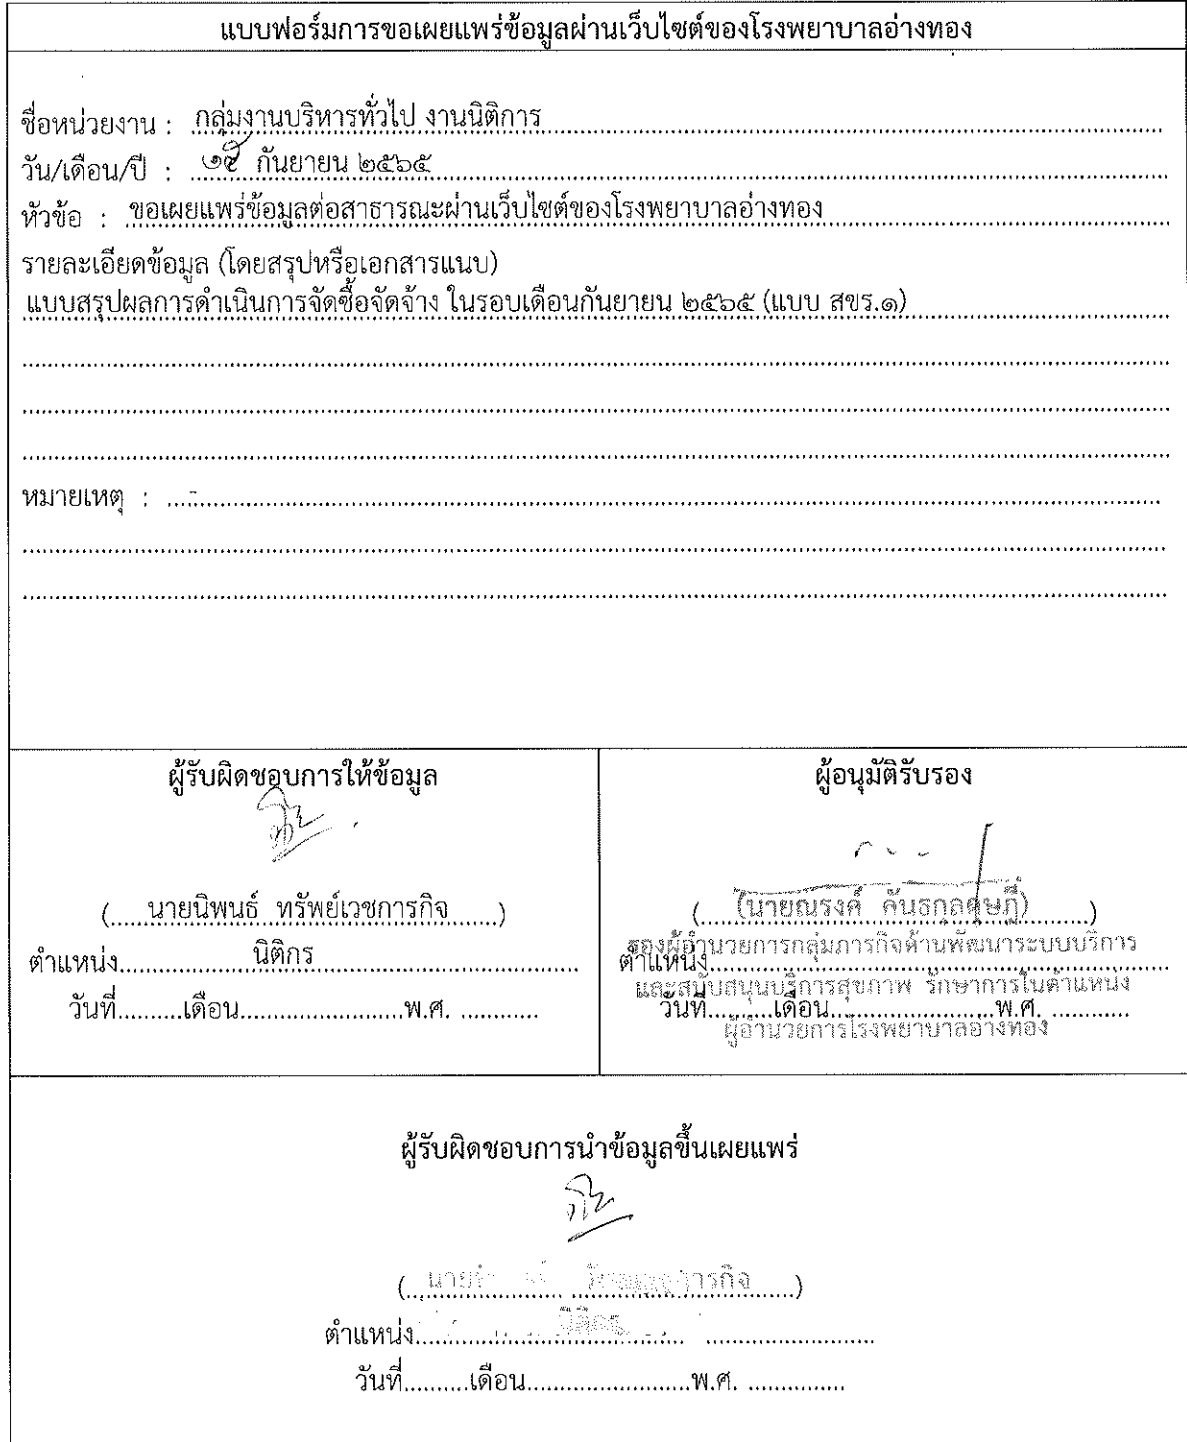 แบบฟอร์มการขอเผยแพร่ข้อมูลผ่านเว็บไซต์ของโรงพยาบาลอ่างทอง
ชื่อหน่วยงาน : กลุ่มงานบริหารทั่วไป งานนิติการ
วัน/เดือน/ปี : กันยายน ๒๕๖๕
หัวข้อ : ขอเผยแพร่ข้อมูลต่อสาธารณะผ่านเว็บไซต์ของโรงพยาบาลอ่างทอง
รายละเอียดข้อมูล (โดยสรุปหรือเอกสารแนบ)
แบบสรุปผลการดำเนินการจัดซื้อจัดจ้าง ในรอบเดือนกันยายน ๒๕๖๕ (แบบ สขร.๑)
หมายเหตุ : ...-...
ผู้รับผิดชอบการให้ข้อมูล
(.....นายนิพนธ์ ทรัพย์เวชการกิจ......)
ตำแหน่ง..................นิติกร..................
วันที่..........เดือน.........................พ.ศ. ............
ผู้อนุมัติรับรอง
(นายณรงค์ คันธกุลดุษฎี)
ตำแหน่ง
รองผู้อำนวยการกลุ่มภารกิจด้านพัฒนาระบบบริการ
และสนับสนุนบริการสุขภาพ รักษาการในตำแหน่ง
วันที่..........เดือน.........................พ.ศ. ............
ผู้อำนวยการโรงพยาบาลอ่างทอง
ผู้รับผิดชอบการนำข้อมูลขึ้นเผยแพร่
ตำแหน่ง..................นิติกร..................
วันที่..........เดือน.........................พ.ศ. ...............